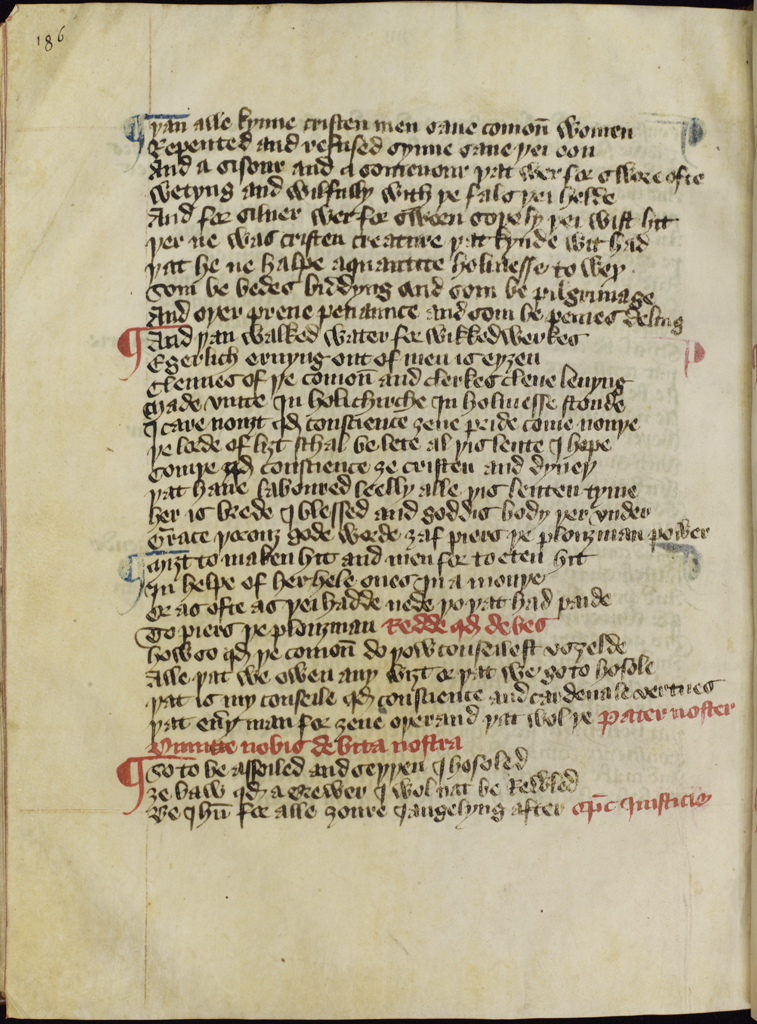 186
¶ þan alle kynne cristen men saue comoñ women
Repented and refused synne saue þei oon
And a sisour and a somenour þat wer for swore ofte
Wetyng and wilfully with þe fals þei helde
And for siluer wer for sworn soþely þei wist hit
þer ne was cristen creature þat kynde wit had
þat he ne halpe a quantite holinesse to wex
Som be bedes biddyng and som be pilgrimage
And oþer preue penaunce and som be penies deling
¶ And þan walked water for wikked werkes
Egerlich ernyng out of men is eyȝen
Clennes of þe comoñ and clerkes clene leuyng
Made vnite in holi chirche in holinesse stonde
I care nouȝt qđ conscience ȝeue pride come nouþe
þe lorde of liȝt schal be lete al þis lente I hope
Comeþ qđ conscience ȝe cristen and dyneþ
þat haue laboured leelly alle þis lenten tyme
her is brede I blessed and goddis body þer vnder
Grace þorouȝ gode worde ȝaf piers þe plouȝman power
¶ Myȝt to maken hit and men for to eten hit
In helpe of her hele ones in a monþe
Or as ofte as þei hadde nede þo þat had paide
To piers þe plouȝman Redde qđ debes
how so qđ þe comoñ do þow conseilest vs ȝelde
Alle þat we owen any wiȝt or þat we go to hosole
þat is my conseile qđ conscience and cardenale vertues
þat eu̅y man for ȝeue oþer and þat wol þe pater noster
Dimitte nobis debita nostra
¶ So to be assoiled and seþþen I hosoled
ȝe baw qđ a brewer I wol nat be Rewled
Be Ihu̅ for alle ȝoure iangelyng after sp̅c iusticie